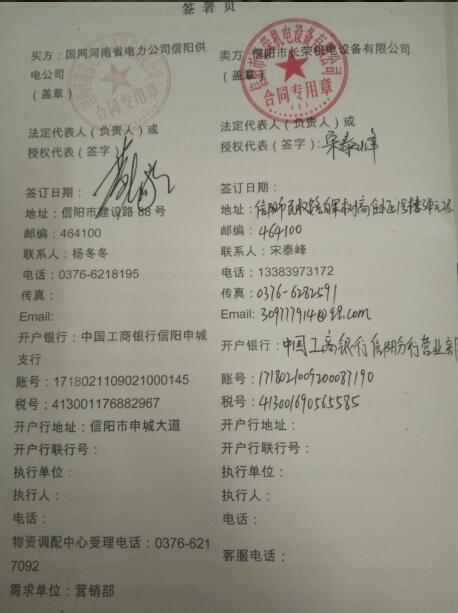 签署页
买方：国网河南省电力公司信阳供
电公司
（盖章）
法定代表人（负责人）或
授权代表（签字）
签订日期：
地址：信阳市建设路 88 号
邮编：464100
联系人：杨冬冬
电话：0376-6218195
传真：
Email:
开户银行：中国工商银行信阳申城
支行
账号：1718021109021000145
税号：413001176882967
开户行地址：信阳市申城大道
开户行联行号：
执行单位：
执行人：
电话：
物资调配中心受理电话：0376-621
7092
需求单位：营销部
合同专用章
卖方：信阳市长荣机电设备有限公司
（盖章）
信阳市长荣机电设备有限公司
合同专用章
（1）
法定代表人（负责人）或
授权代表（签字）：宋泰峰
签订日期：
地址：信阳市民权路
邮编：464100
联系人：宋泰峰
电话：13383973172
传真：0376-6282591
Email: 309777914@qq.com
开户银行：中国工商银行信阳分行营业部
账号：1718021009200087190
税号：413001690565585
开户行地址：
开户行联行号：
执行单位：
执行人：
电话：
客服电话：